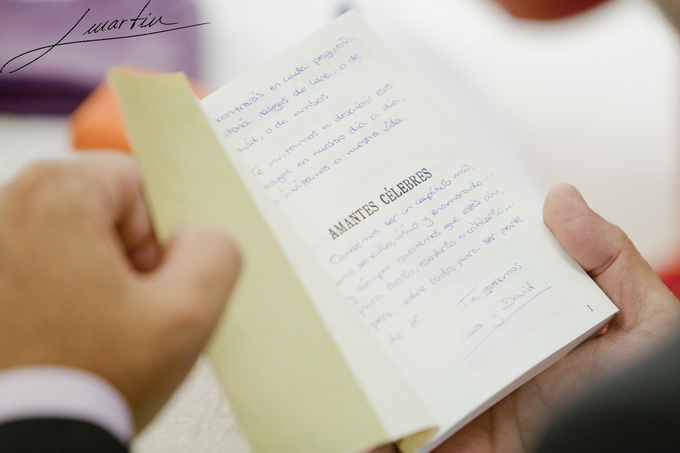 Jmartin
encontrarás en cada pequeña
rasgos de Lara, o de
vid, o de ambos.
Te invitamos a descubrir esos
rasgos en nuestro día a día,
invitamos a nuestra vida.
AMANTES CÉLEBRES
Queremos ser un capítulo más,
uno sencillo, único y enamorado...
y siempre queremos que estés ahí,
para leerlo, escribirlo o criticarlo...
pero, sobre todo, para ser parte
de él.
Te queremos
Lara y David
1